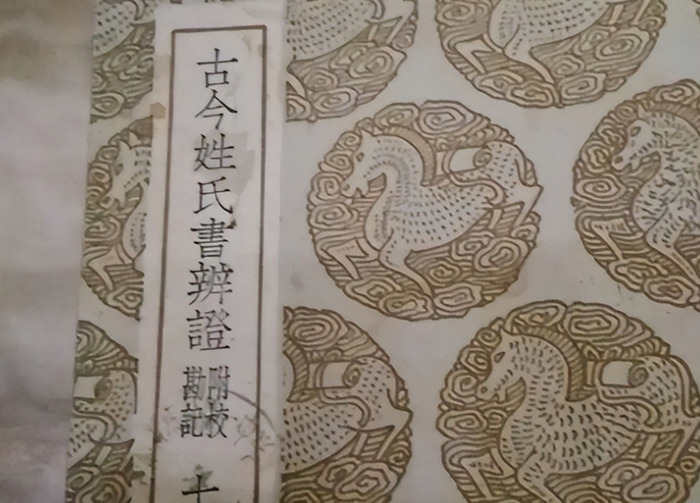 古今姓氏書辨證
附校
勘記